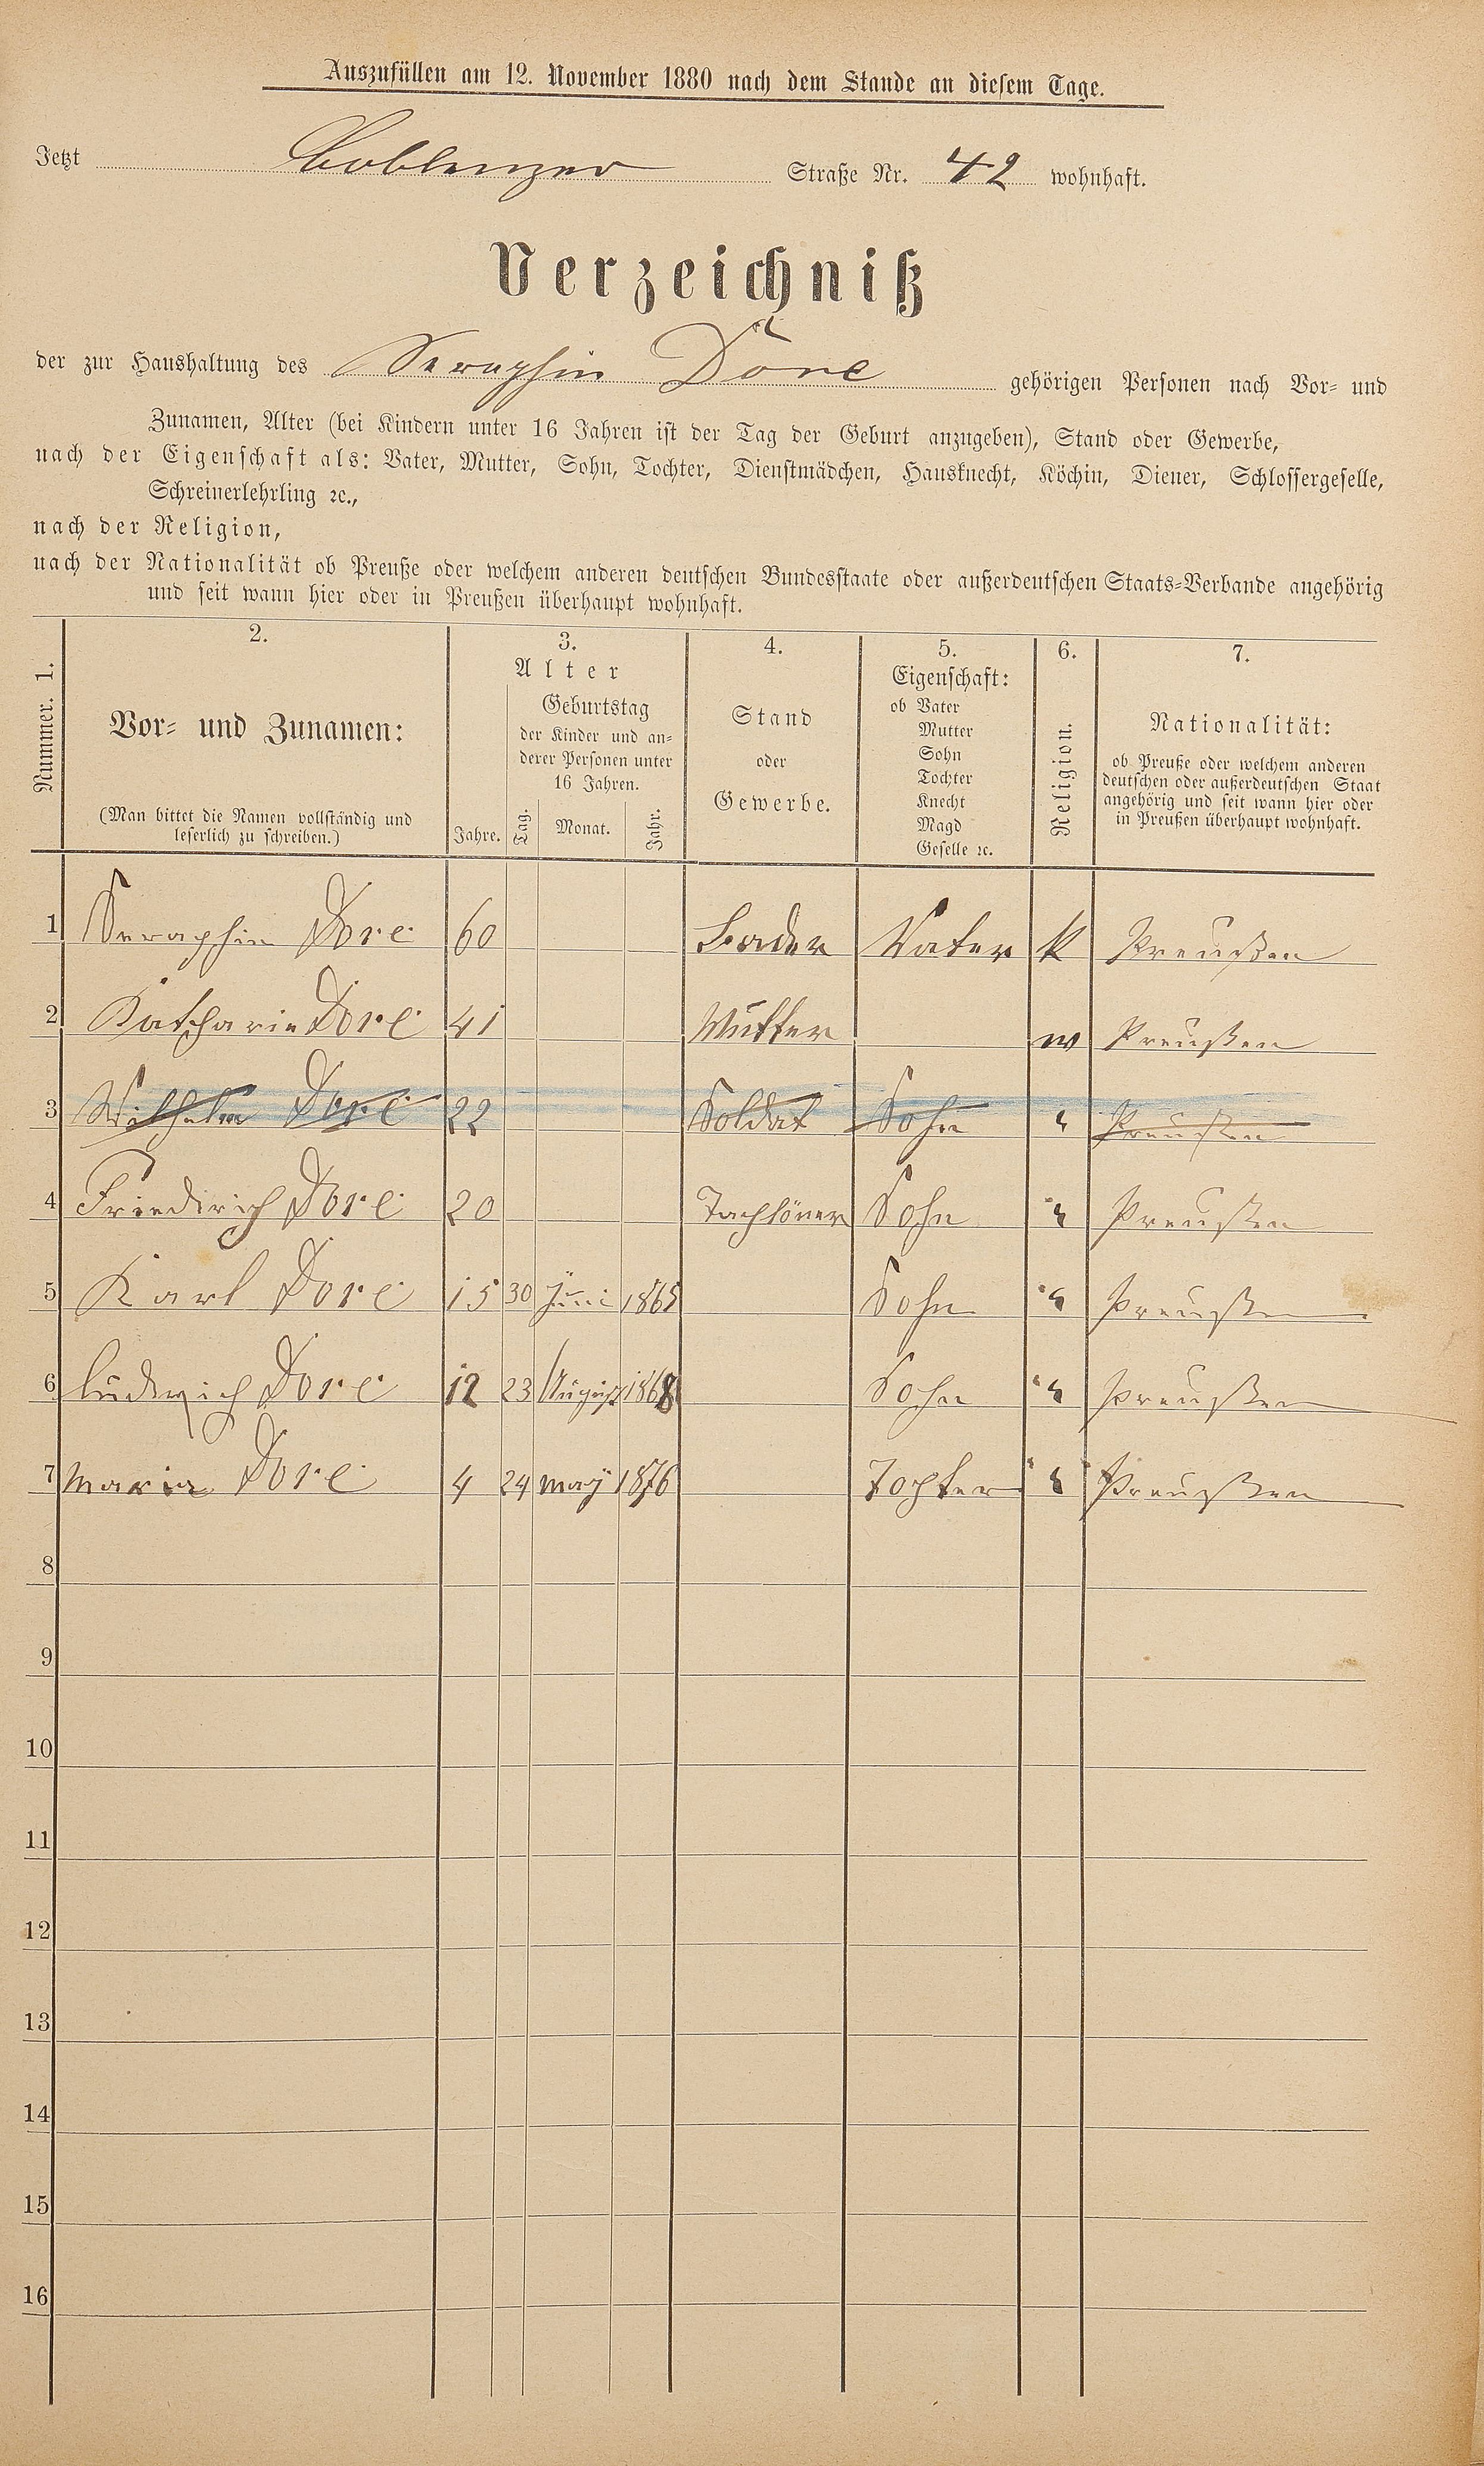 Auszufüllen am 12. November 1880 nach dem Stande an diesem Tage.
Jetzt Coblenzer Straße Nr. 42 wohnhaft.
Verzeichniß
der zur Haushaltung des Seraphin Dore gehörigen Personen nach Vor- und
Zunamen, Alter (bei Kindern unter 16 Jahren ist der Tag der Geburt anzugeben), Stand oder Gewerbe,
nach der Eigenschaft als: Vater, Mutter, Sohn, Tochter, Dienstmädchen, Hausknecht, Köchin, Diener, Schlossergeselle,
Schreinerlehrling ꝛc.,
nach der Religion,
nach der Nationalität ob Preuße oder welchem anderen deutschen Bundesstaate oder außerdeutschen Staats-Verbande angehörig
und seit wann hier oder in Preußen überhaupt wohnhaft.
Nummer. 1.
2.
Vor- und Zunamen:
(Man bittet die Namen vollständig und
leserlich zu schreiben.)
3.
Alter
Jahre.
Geburtstag
der Kinder und an-
derer Personen unter
16 Jahren.
Tag. Monat. Jahr.
4.
Stand
oder
Gewerbe.
5.
Eigenschaft:
ob Vater
Mutter
Sohn
Tochter
Knecht
Magd
Geselle ꝛc.
6.
Religion.
7.
Nationalität:
ob Preuße oder welchem anderen
deutschen oder außerdeutschen Staat
angehörig und seit wann hier oder
in Preußen überhaupt wohnhaft.
1 Seraphin Dore 60 Vater K Preußen
2 Katharin Dore 41 Mutter w Preußen
3 Wilhelm Dore 22 Soldat Sohn " Preußen
4 Friedirich Dore 20 Tachlöner Sohn " Preußen
5 Karl Dore 15 30 Juni 1865 Sohn " Preußen
6 Ludwich Dore 12 23 August 1868 Sohn " Preußen
7 Maria Dore 4 24 may 1876 Tochter " Preußen
8
9
10
11
12
13
14
15
16